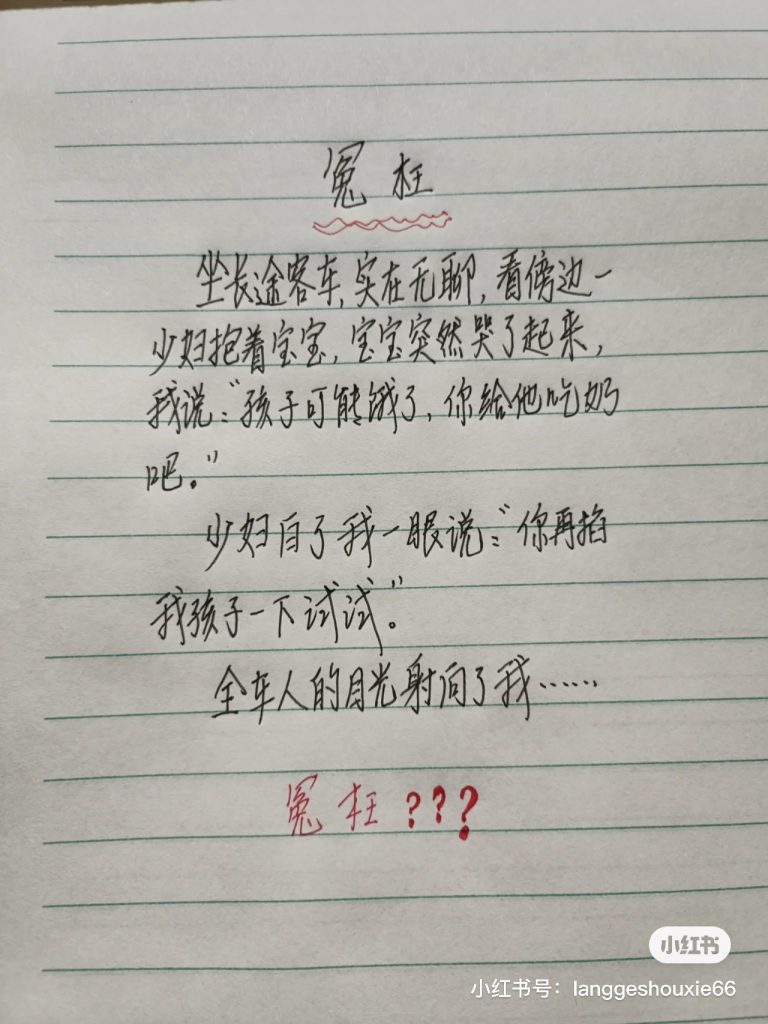 冤枉
坐长途客车,实在无聊,看傍边一
少妇抱着宝宝,宝宝突然哭了起来,
我说:“孩子可能饿了,你给他吃奶
吧。”
少妇白了我一眼说:“你再掐
我孩子一下试试”。
全车人的目光射向了我……
冤枉???
小红书
小红书号:langgeshouxie66